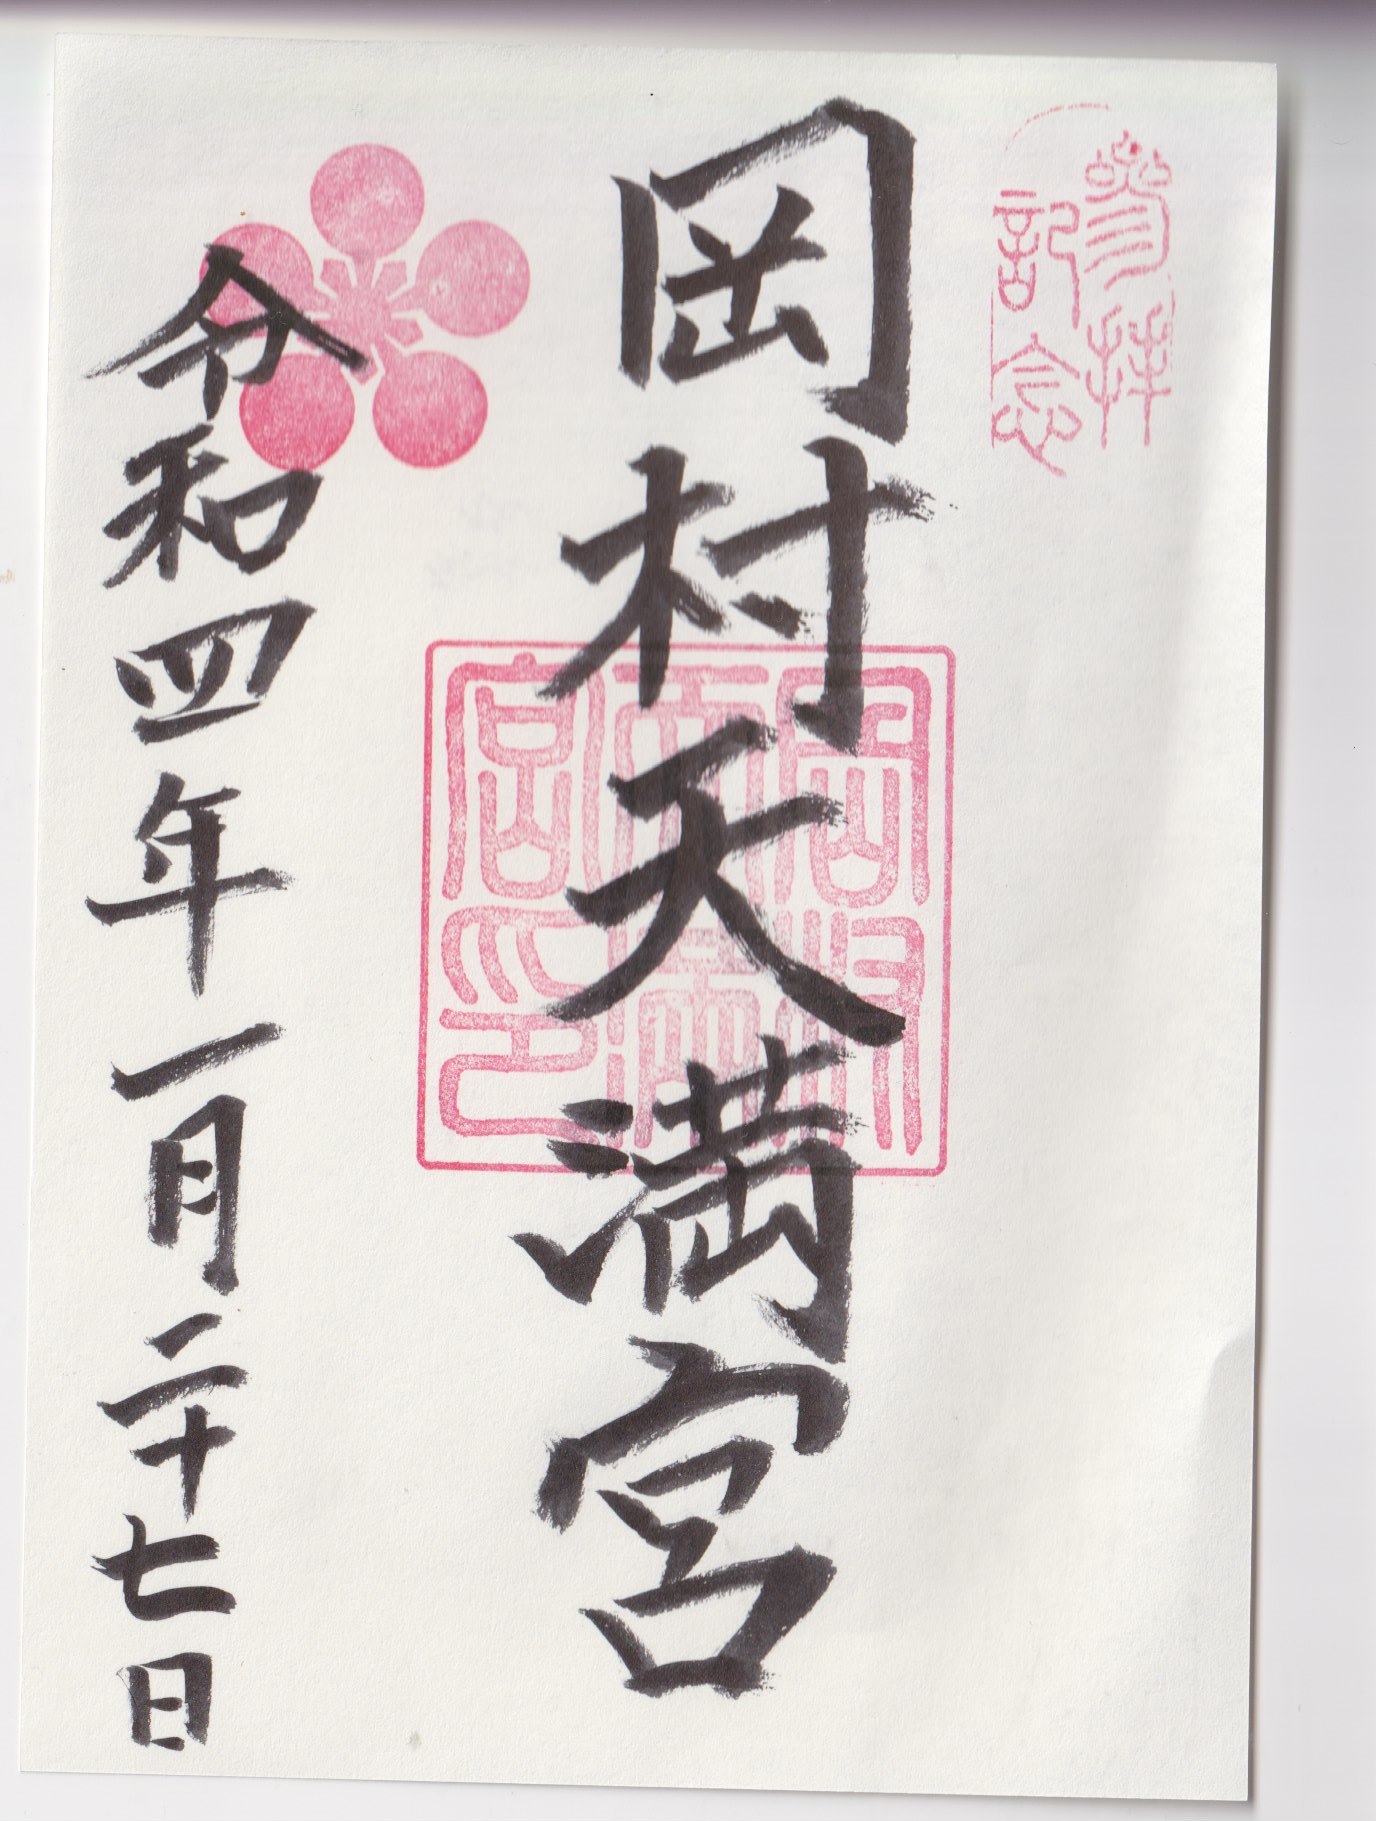 参拝
記念
岡村天満宮
岡村
天満
宮印
令和四年一月二十七日